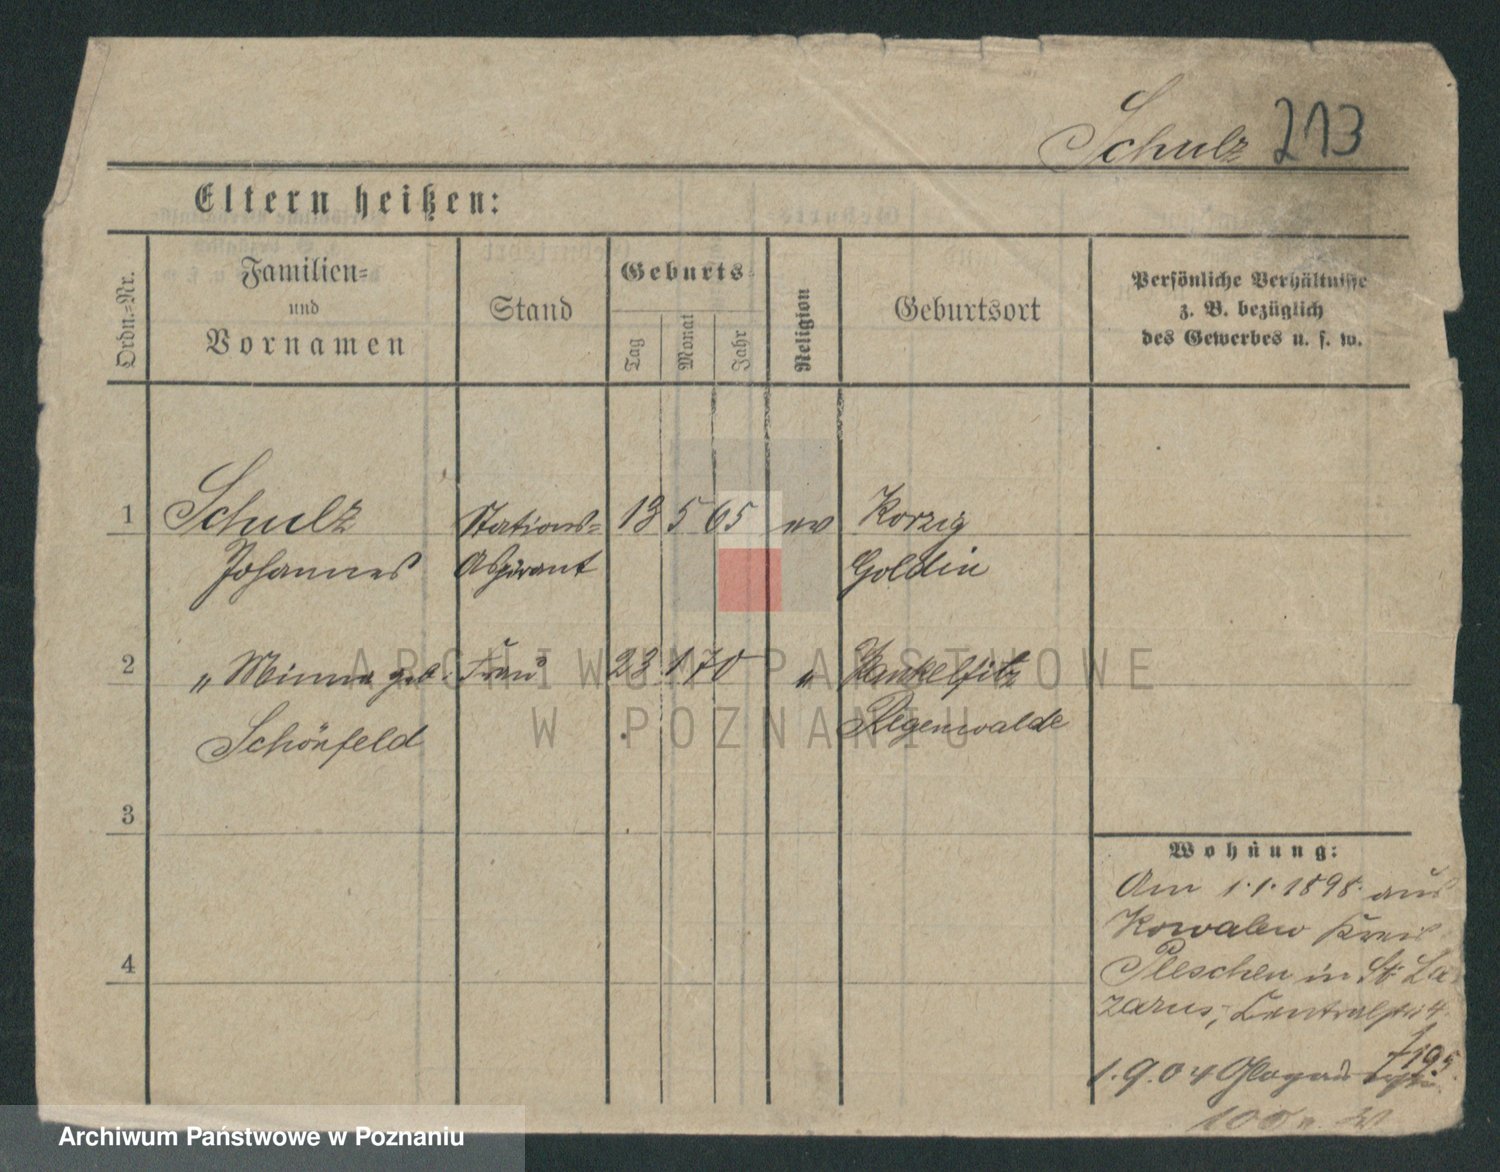 Schulz 213
Eltern heißen:
Ordn.-Nr.
Familien-
und
Vornamen
Stand
Geburts
Tag
Monat
Jahr
Religion
Geburtsort
Persönliche Verhältnisse
z. B. bezüglich
des Gewerbes u. s. w.
1 Schulz Stations= 13 5 65 ev Korzig
Johannes Aspirant Goldin
2 „ Minna geb. Frau 23 1 70 „
Schönfeld Regenwalde
3
4
Wohnung:
Am 1.1.1898 aus
Kowalew Kreis
Pleschen in St. La-
zarus, Centralstr. 4.
1.9.04 Glogau
ARCHIWUM PAŃSTWOWE
W POZNANIU
Archiwum Państwowe w Poznaniu